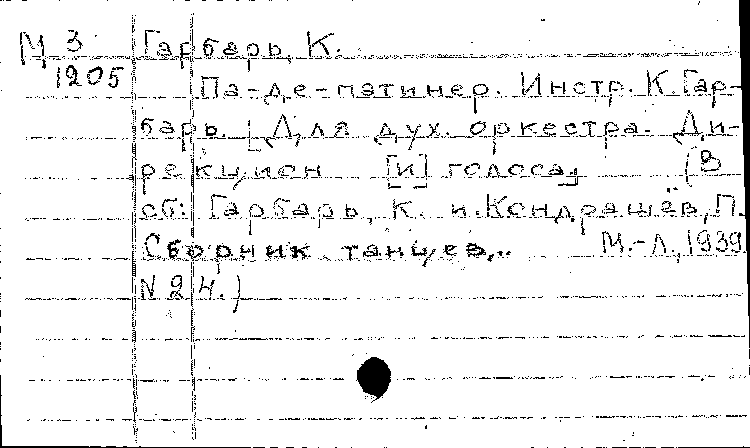 М 3 Гарбарь, К.
1205 Па-де-патинер. Инстр. К. Гар-
барь. [Для дух. оркестра. Ди-
рекцион [и] голоса] (В
сб: Гарбарь, К. и Кондрашёв, П.
Сборник танцев... М.-Л., 1939
N 24.)